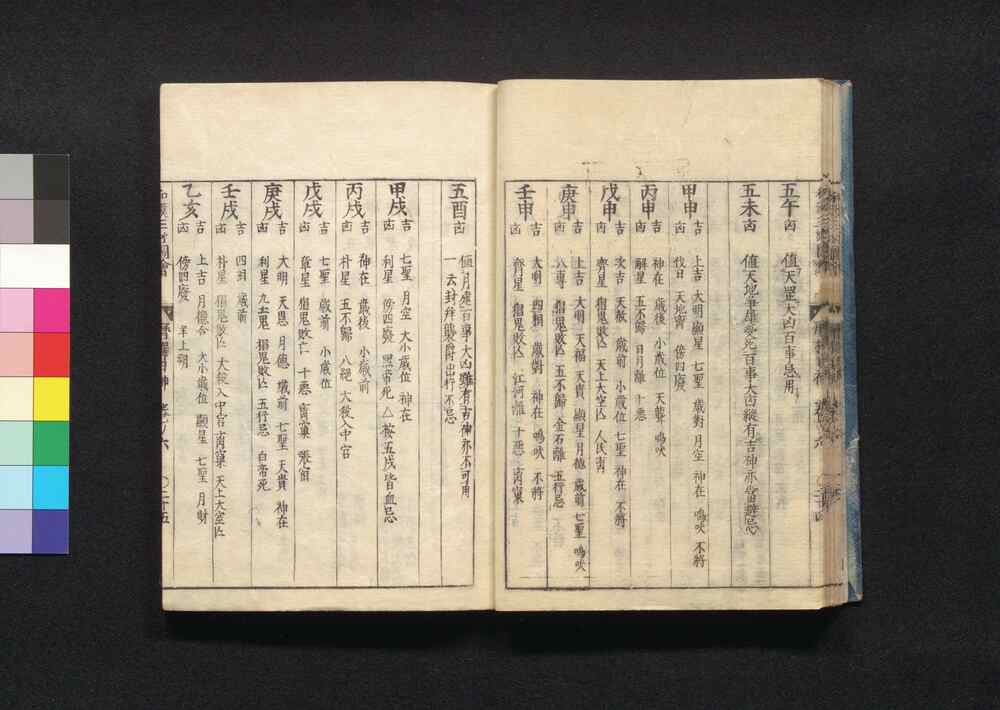 五午 凶 值天罡大凶百事忌用
五未 凶 值天地雌雄受死百事大凶縱有吉神亦當避忌
甲申 吉 上吉 大明 顯星 七聖 歲對 月空 神在 鳴吠 不將
凶 伐日 天地 傍四廢
丙申 吉 神在 歲後 小歲位 天聾 鳴吠
凶 解星 五不歸 日月離 十惡
戊申 吉 次吉 天赦 歲前 小歲位 七聖 神在 不將
凶 齊星 猖鬼敗亡 天上大空亡 人民
庚申 吉 上吉 大明 天福 天貴 顯星 月德 歲前 七聖 鳴吠
凶 八專 猖鬼敗亡 五不歸 金石離 五行忌
壬申 吉 大明 四相 歲對 神在 鳴吠 不將
凶 齊星 猖鬼敗亡 江河離 十惡
五酉 凶 值月虛百事大凶雖有吉神亦不可用
一云封拜襲爵出行不忌
甲戌 吉 七聖 月空 大小歲位 神在
凶 利星 傍四廢 黑帝死 △按五戌皆血忌
丙戌 吉 神在 歲後 小歲前
凶 朴星 五不歸 八絕 大殺入中宮
戊戌 吉 七聖 歲前 小歲位
凶 章星 猖鬼敗亡 十惡
庚戌 吉 大明 天恩 月德 歲前 七聖 天貴 神在
凶 利星 九土鬼 猖鬼敗亡 五行忌 白帝死
壬戌 吉 四相 歲前
凶 朴星 猖鬼敗亡 大殺入中宮 天上大空亡
乙亥 吉 上吉 月德合 大小歲位 顯星 七聖 月財
凶 傍四廢 羊上朔
和漢三才圖會 曆擇日神 卷ノ六 〇二十五